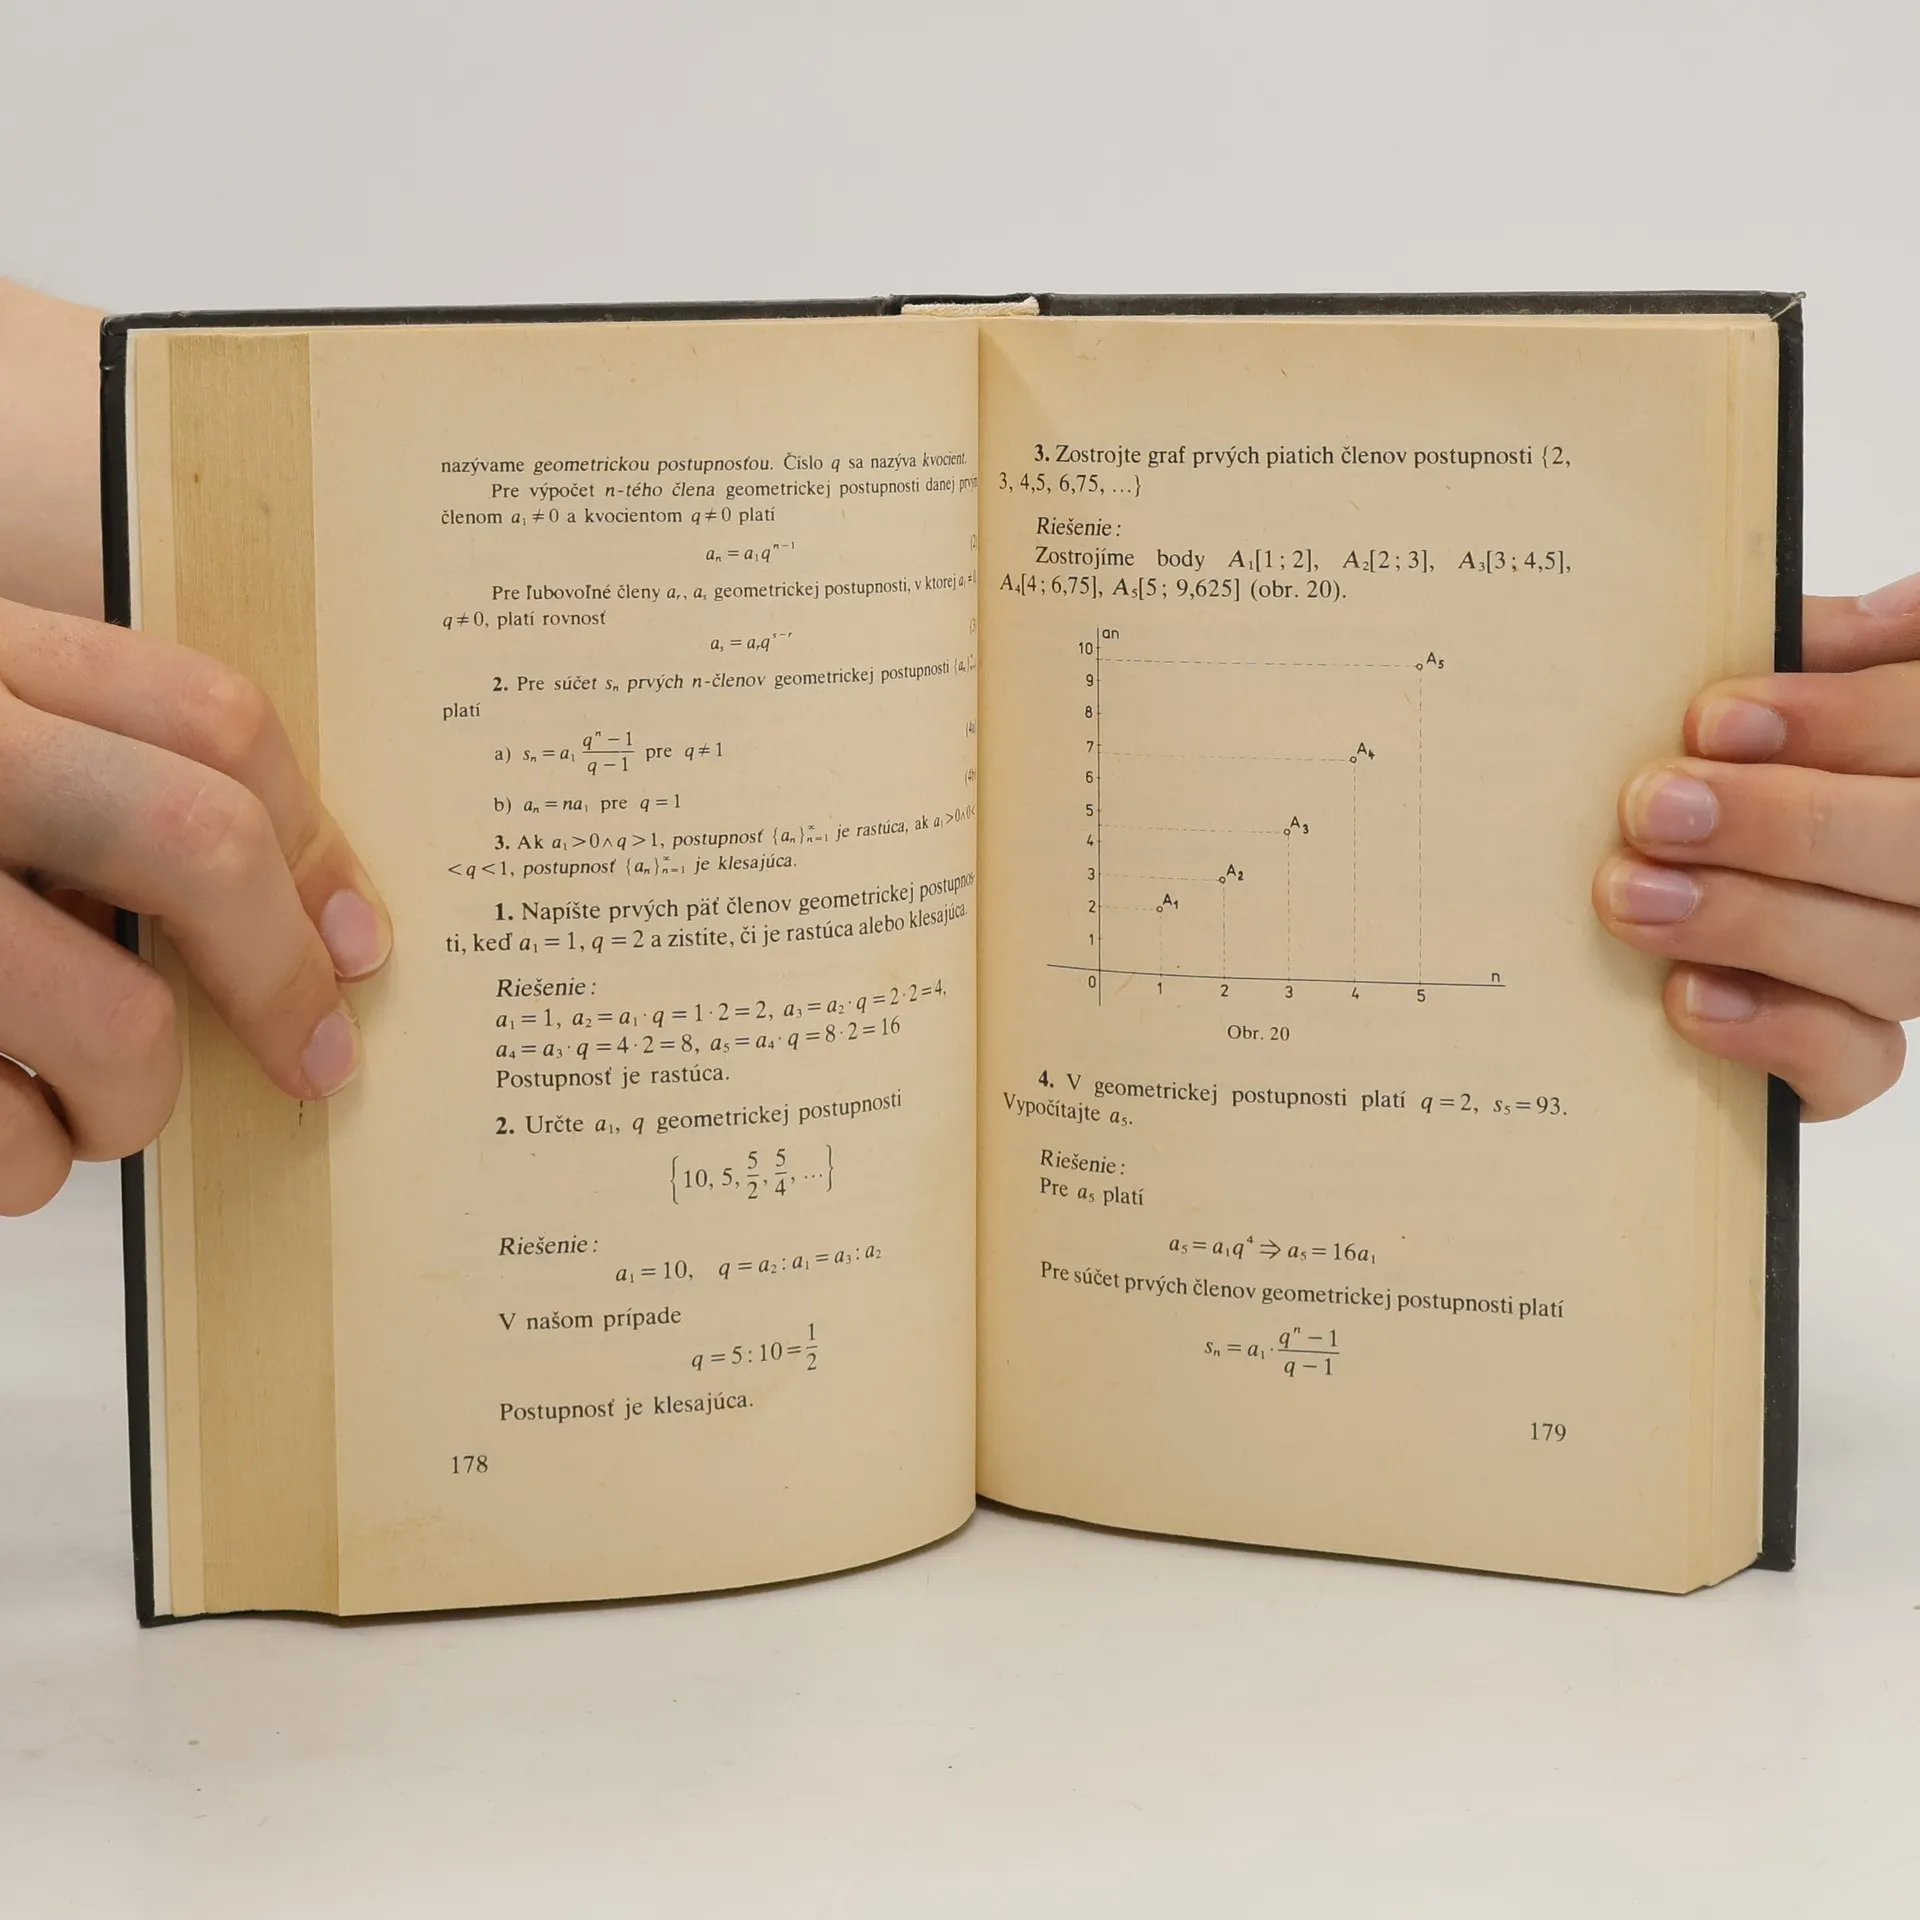 nazývame geometrickou postupnosťou. Číslo q sa nazýva kvocient.
Pre výpočet n-tého člena geometrickej postupnosti danej
členom a₁ ≠ 0 a kvocientom q ≠ 0 platí
aₙ = a₁qⁿ⁻¹
Pre ľubovoľné členy aᵣ, aₛ geometrickej postupnosti, v ktorej
q ≠ 0, platí rovnosť
aₛ = aᵣqˢ⁻ʳ
2. Pre súčet sₙ prvých n-členov geometrickej postupnosti
platí
a) sₙ = a₁ (qⁿ − 1)/(q − 1) pre q ≠ 1
b) aₙ = na₁ pre q = 1
3. Ak a₁ > 0 ∧ q > 1, postupnosť {aₙ}ₙ₌₁^∞ je rastúca, ak a₁ > 0 ∧ 0 <
< q < 1, postupnosť {aₙ}ₙ₌₁^∞ je klesajúca.
1. Napíšte prvých päť členov geometrickej postupnos-
ti, keď a₁ = 1, q = 2 a zistite, či je rastúca alebo klesajúca.
Riešenie:
a₁ = 1, a₂ = a₁ · q = 1 · 2 = 2, a₃ = a₂ · q = 2 · 2 = 4,
a₄ = a₃ · q = 4 · 2 = 8, a₅ = a₄ · q = 8 · 2 = 16
Postupnosť je rastúca.
2. Určte a₁, q geometrickej postupnosti
{10, 5, 5/2, 5/4, ...}
Riešenie:
a₁ = 10, q = a₂ : a₁ = a₃ : a₂
V našom prípade
q = 5 : 10 = 1/2
Postupnosť je klesajúca.
178
3. Zostrojte graf prvých piatich členov postupnosti {2,
3, 4,5, 6,75, ...}
Riešenie:
Zostrojíme body A₁[1; 2], A₂[2; 3], A₃[3; 4,5],
A₄[4; 6,75], A₅[5; 9,625] (obr. 20).
an
10
A₅
9
8
7
A₄
6
5
A₃
4
3
A₂
2
A₁
1
0 1 2 3 4 5 n
Obr. 20
4. V geometrickej postupnosti platí q = 2, s₅ = 93.
Vypočítajte a₅.
Riešenie:
Pre a₅ platí
a₅ = a₁q⁴ ⇒ a₅ = 16a₁
Pre súčet prvých členov geometrickej postupnosti platí
sₙ = a₁ · (qⁿ − 1)/(q − 1)
179